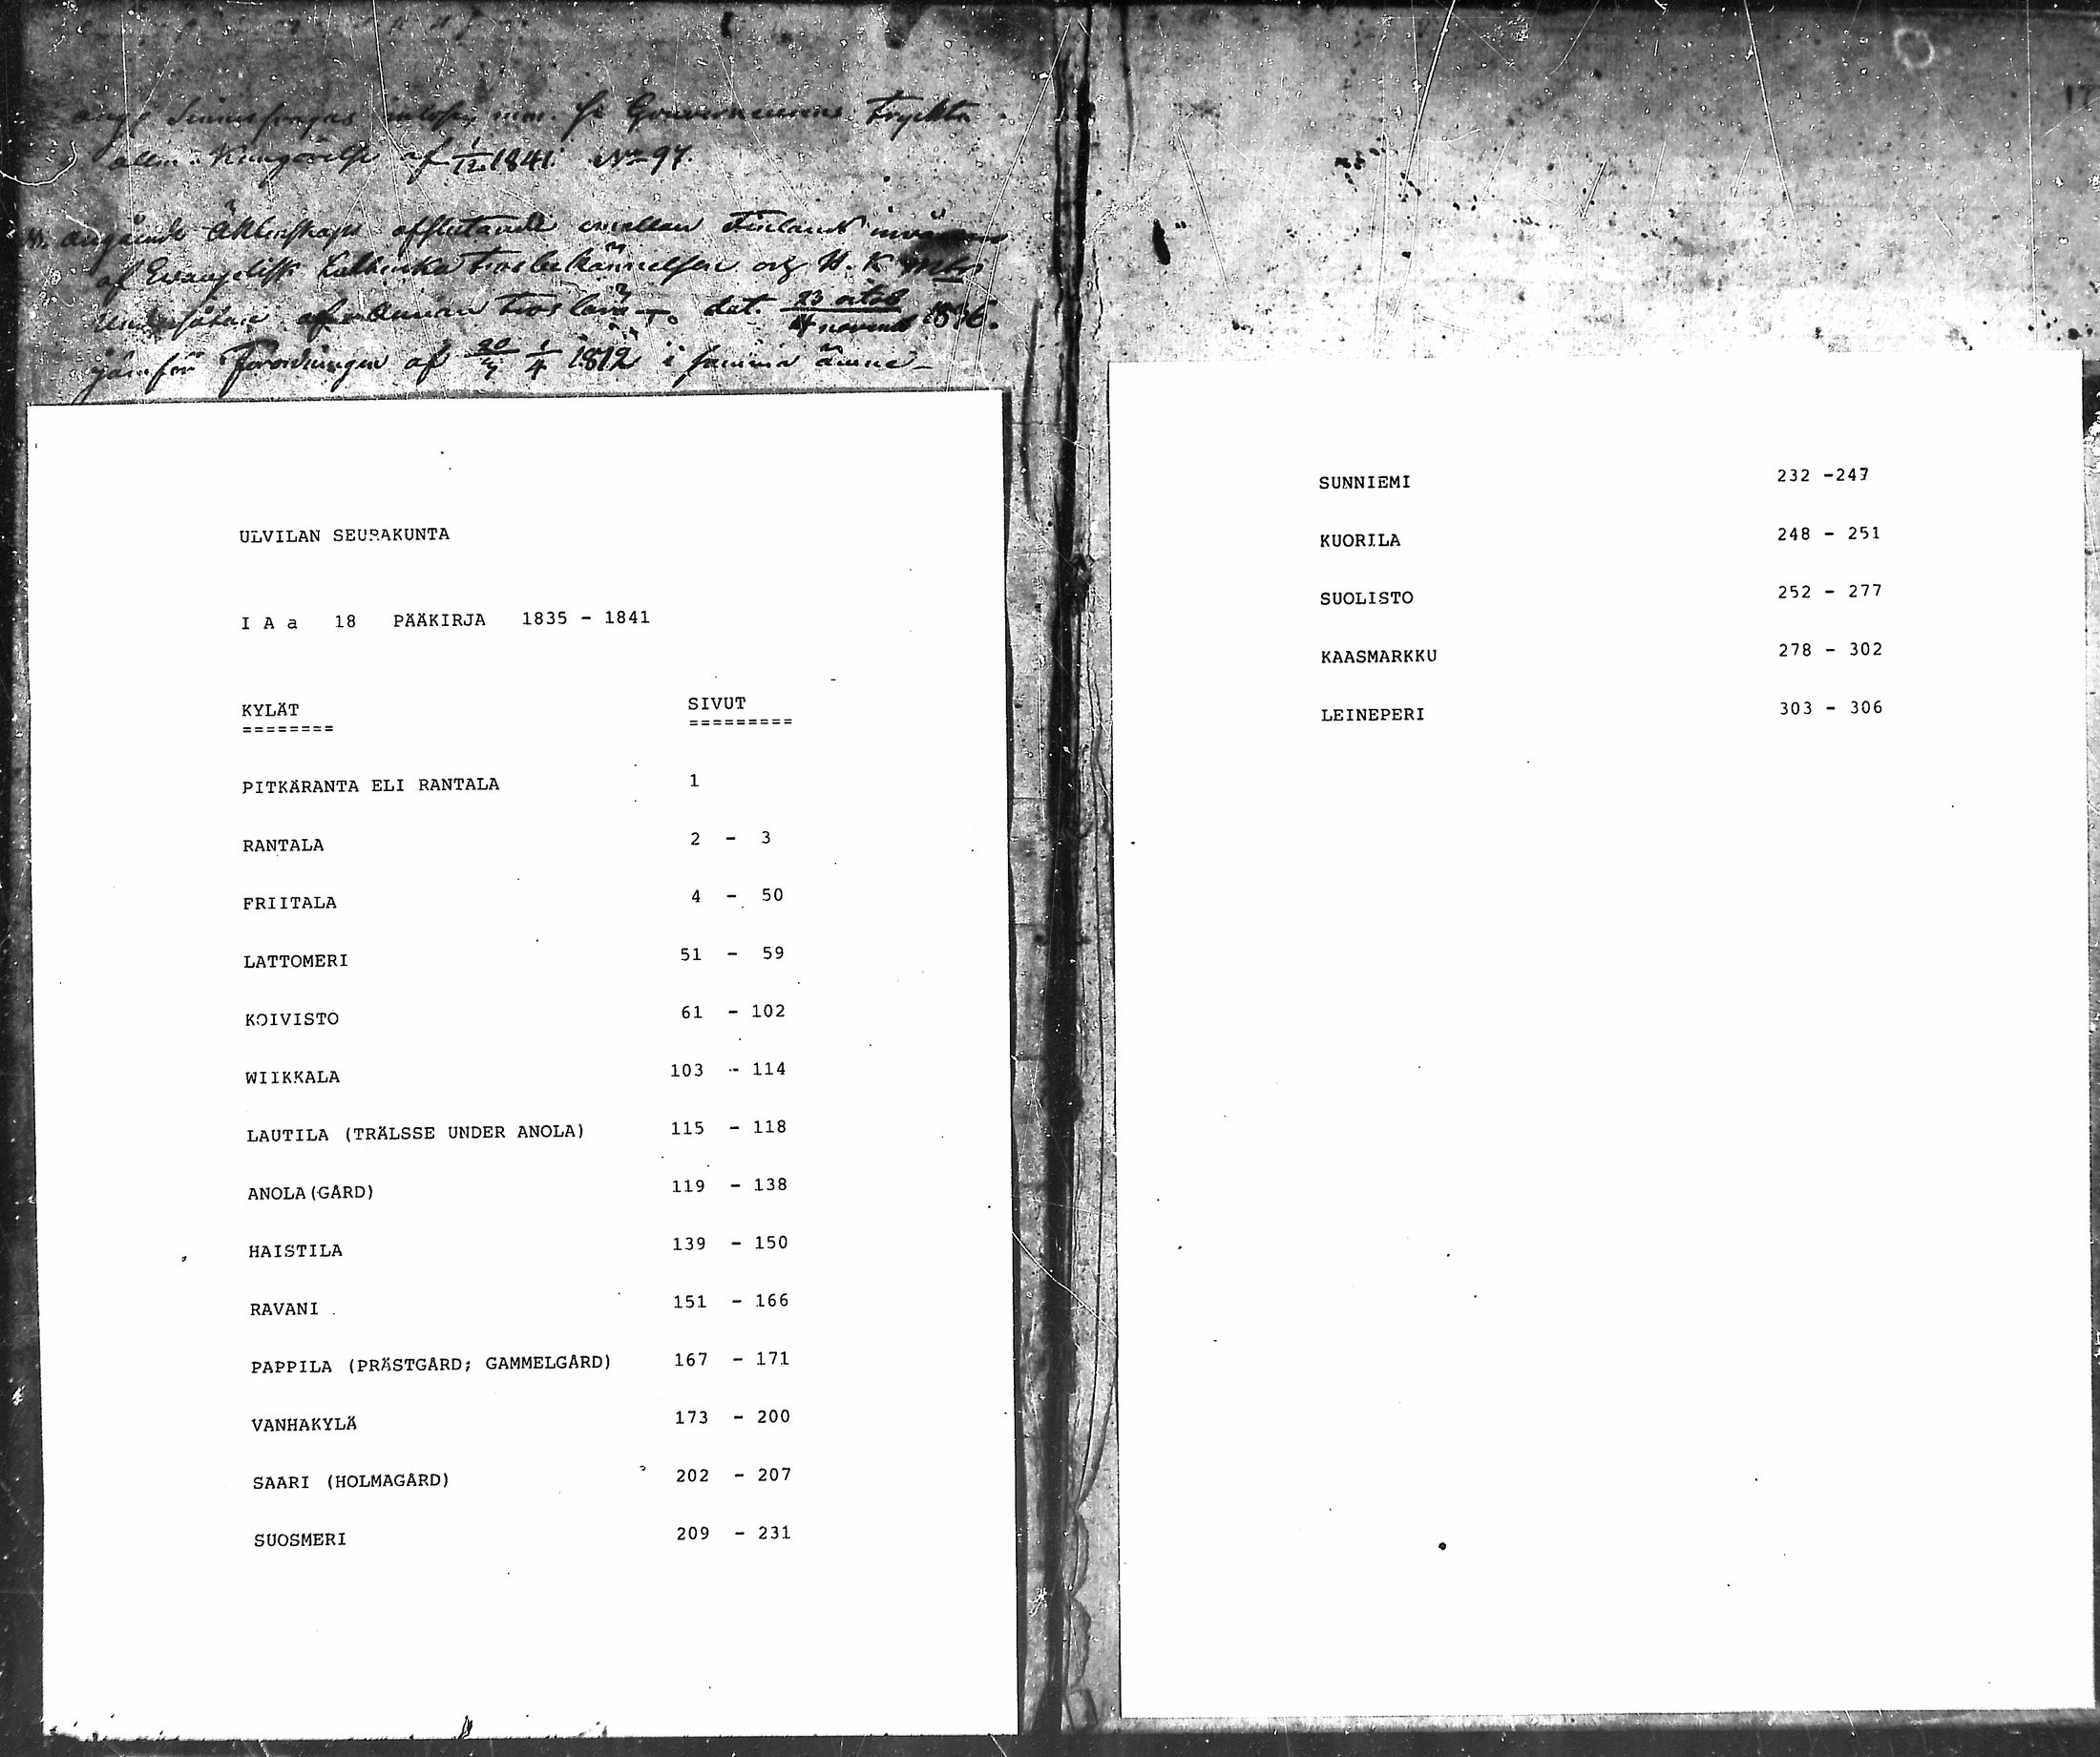 Gouverneurens tryckta
allm. Kungörelse af 1/12 1841. No 97.
angående Äktenskaps afslutande emellan Finlands
af Evangelisk Lutherska trosbekännelsen och
undersåtare af annan troslära det. 23 octob / 4 novemb
jämför Förordningen af 20/3 1/4 1812 i samma ämne
ULVILAN SEURAKUNTA
I A a 18 PÄÄKIRJA 1835 - 1841
KYLÄT SIVUT
======== =========
PITKÄRANTA ELI RANTALA 1
RANTALA 2 - 3
FRIITALA 4 - 50
LATTOMERI 51 - 59
KOIVISTO 61 - 102
WIIKKALA 103 - 114
LAUTILA (TRÄLSSE UNDER ANOLA) 115 - 118
ANOLA (GÅRD) 119 - 138
HAISTILA 139 - 150
RAVANI 151 - 166
PAPPILA (PRÄSTGÅRD; GAMMELGÅRD) 167 - 171
VANHAKYLÄ 173 - 200
SAARI (HOLMAGÅRD) 202 - 207
SUOSMERI 209 - 231
SUNNIEMI 232 -247
KUORILA 248 - 251
SUOLISTO 252 - 277
KAASMARKKU 278 - 302
LEINEPERI 303 - 306